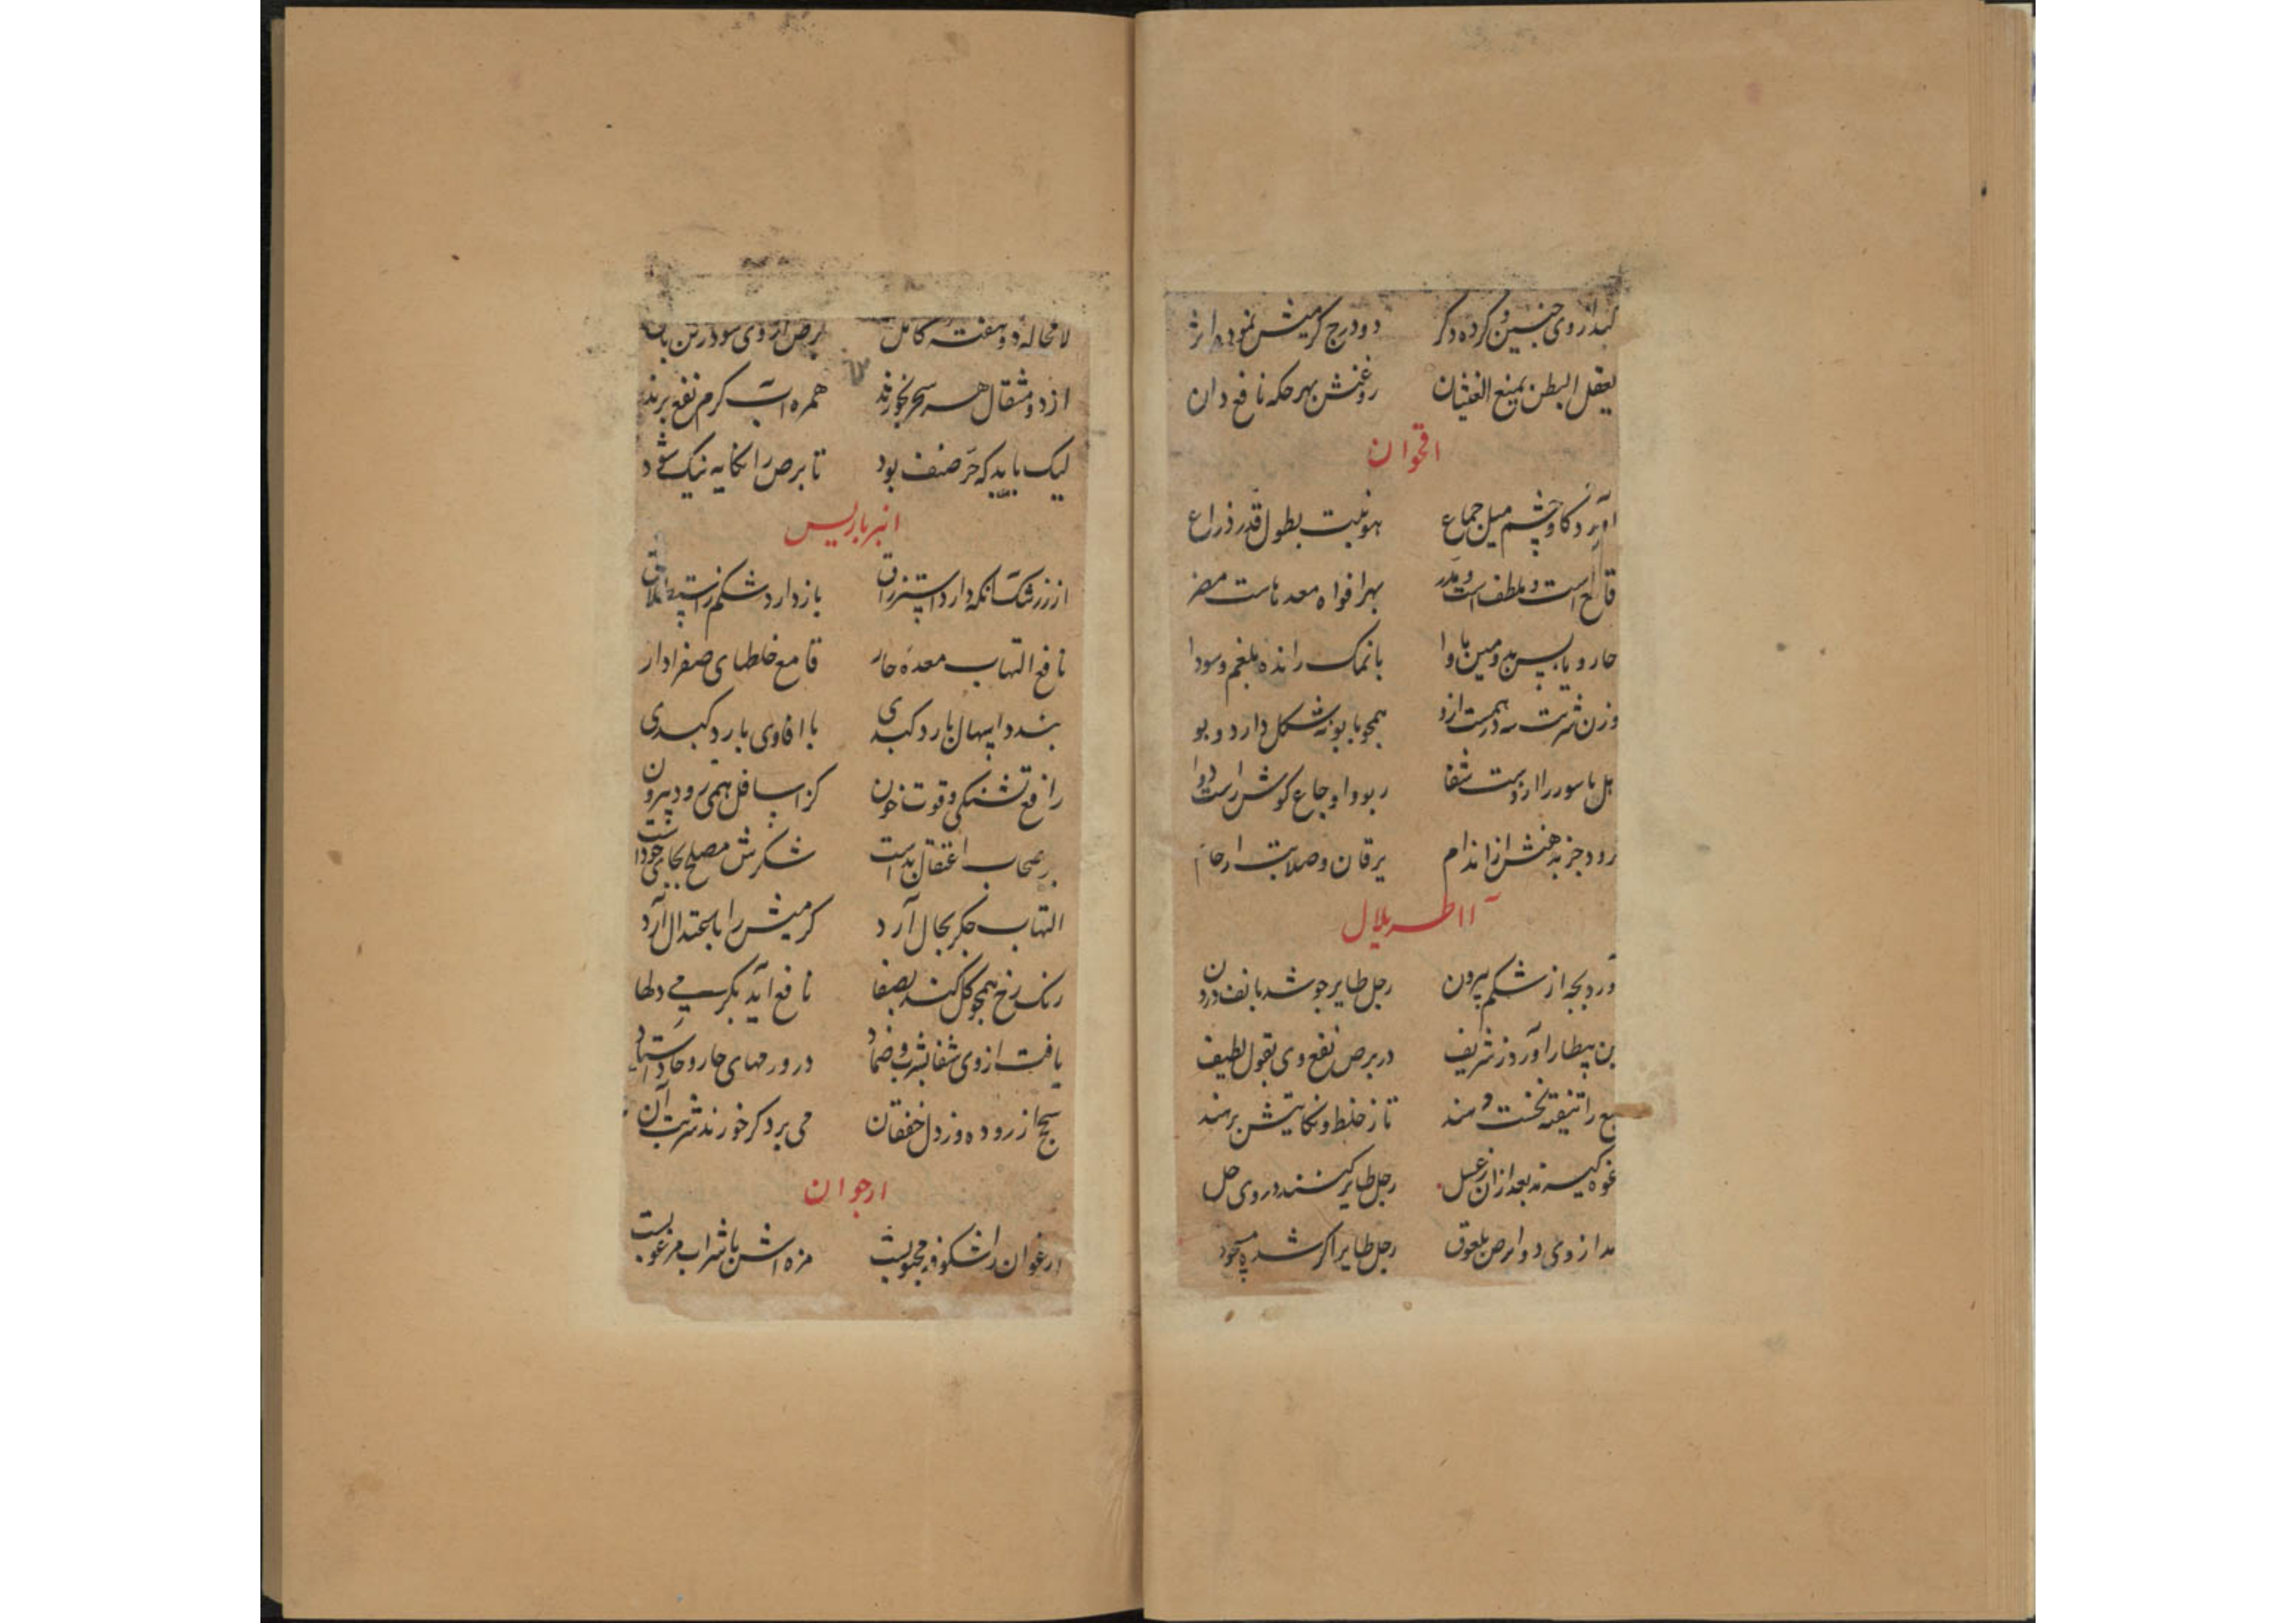 کبد از وی چنین و کرده دکر دو درج کرمیش نموده اثر
یعقل البطن یمنع الغثیان روغنش بهر حکه نافع دان
اقحوان
آورد کاوچشم میل جماع هو نبت بطول قدر ذراع
فاتح است و ملطف است و مدر بهر افواه معدهاست مضر
حار و یابس بدومین ماوا با نمک رانده بلغم و سودا
وزن شربت سه درهمست ازو همچو بابونه شکل دارد و بو
اهل باسور را ازوست شفا ربو و اوجاع کوش راست دوا
برود جز بدهنش از اندام یرقان و صلابت ارحام
آاطریلال
آورد بچه از شکم بیرون رجل طایر چو شد بانف درون
ابن بیطار آورد ز شریف در برص نفع وی بقول لطیف
طبع را تنقیه نخست دهند تا ز خلط و نکایتش برهند
غوه کیرند بعد از ان ز عسل رجل طایر کنند در وی حل
بعد از وی دو ابرص ملعوق رجل طایر اکر شده مسحوق
لا محاله دو هفته کامل برص از وی شود ز تن باطل
از دو مثقال هر سحر بخورند همره آب کرم نفع برند
لیک باید که حر صنف بود تا برص را نکایه نیک شود
انبرباریس
از زرشک آنکه دارد استزراق باز دارد شکم ز استطلاق
نافع التهاب معده حار قامع خلطهای صفرادار
بندد اسهال بارد کبدی با افاوی بارد کبدی
رافع تشنکی و قوت خون کز اسافل همی رود بیرون
بر صحاب اعتقال بدست شکرش مصلح بجای خودست
التهاب جکر بحال آرد کرمیش را باعتدال آرد
رنک رخ همچو کل کند بصفا نافع آید بکرمی دلها
یافت از وی شفا بشرب و ضماد در ورمهای حار و حاد استاد
سحج از روده وز دل خفقان می برد کر خورند شربت آن
ارجوان
ارغوان را شکوفه محبوبست مزه اش با شراب مرغوبست